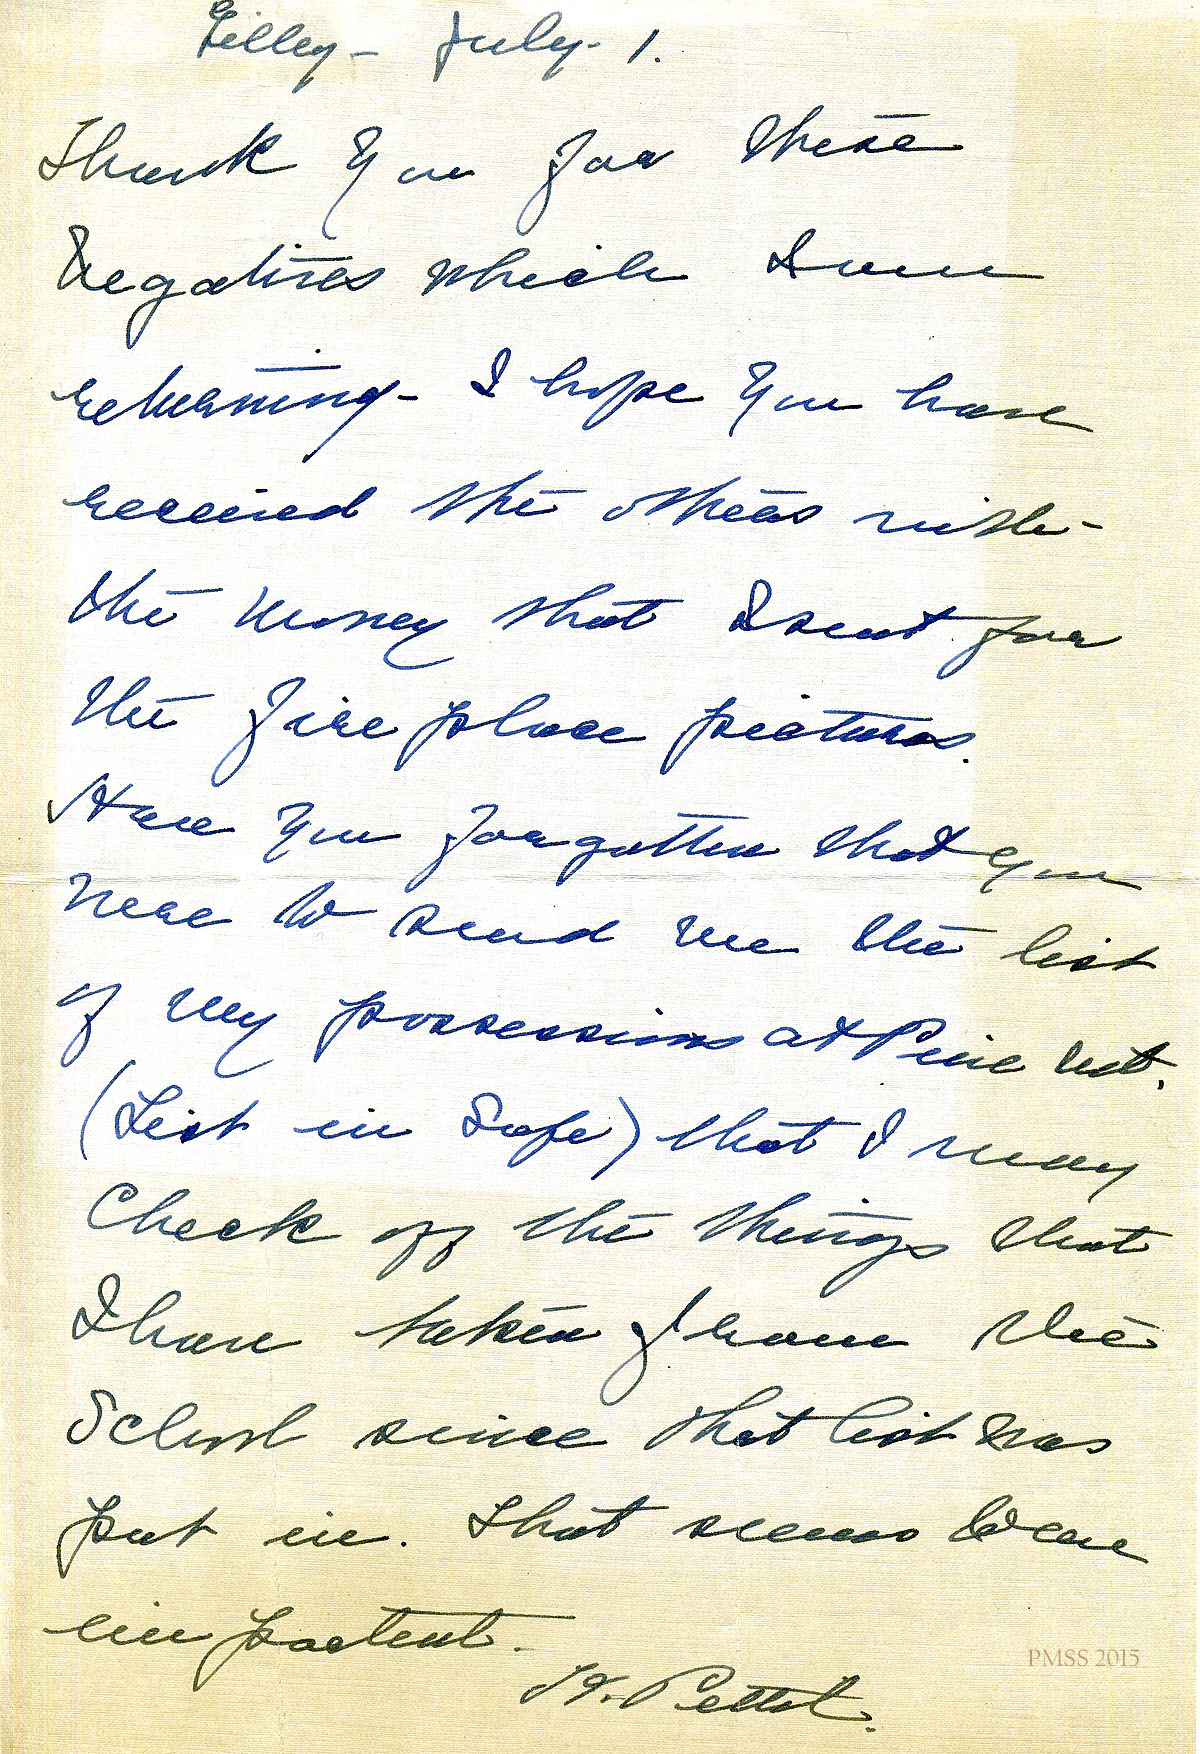 Gilley - July - 1.
Thank you for these
negatives which I am
returning - I hope you have
received the others with -
the money that I sent for
the fire place pictures.
Have you forgotten that you
were to send me the list
of my possessions at Pine Mt.
(List in Safe) that I may
Check off the things that
I have taken from the
School since that list was
put in. That seems to me
important.
H. Pettit.
PMSS 2015